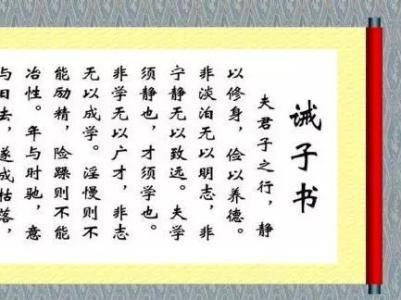 诫子书
夫君子之行，静
以修身，俭以养德。
非淡泊无以明志，非
宁静无以致远。夫学
须静也，才须学也。
非学无以广才，非志
无以成学。淫慢则不
能励精，险躁则不能
冶性。年与时驰，意
与日去，遂成枯落，